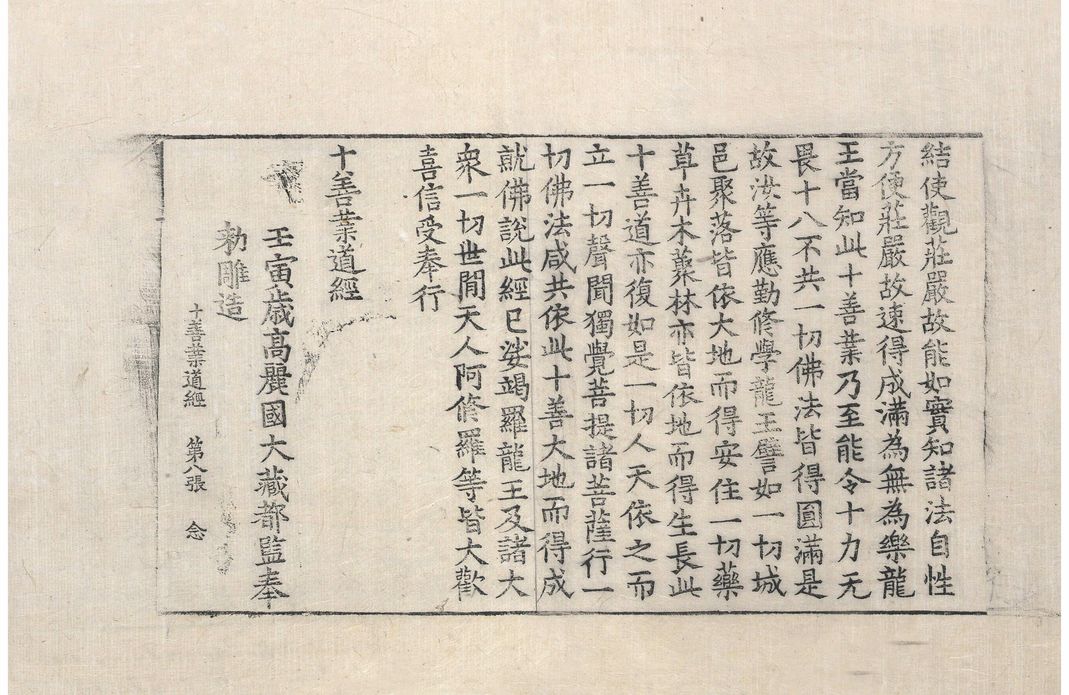 結使觀莊嚴故能如實知諸法自性
方便莊嚴故速得成滿為無為樂龍
王當知此十善業乃至能令十力无
畏十八不共一切佛法皆得圓滿是
故汝等應勤修學龍王譬如一切城
邑聚落皆依大地而得安住一切藥
草卉木藂林亦皆依地而得生長此
十善道亦復如是一切人天依之而
立一切聲聞獨覺菩提諸菩薩行一
切佛法咸共依此十善大地而得成
就佛說此經已娑竭羅龍王及諸大
衆一切世閒天人阿脩羅等皆大歡
喜信受奉行
十善業道經
壬寅歲高麗國大藏都監奉
勅雕造
十善業道經 第八張 念